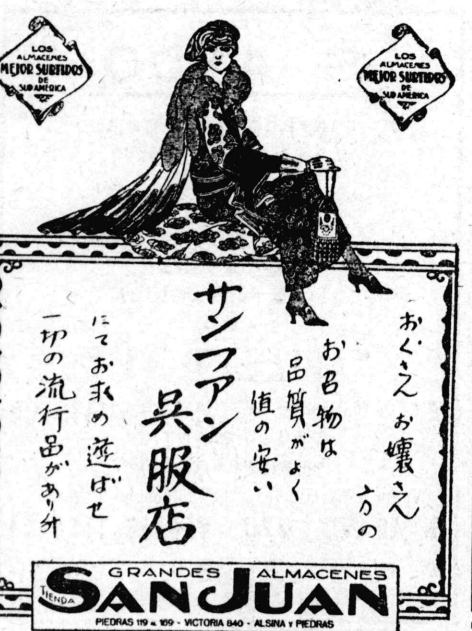 LOS
ALMACENES
MEJOR SURTIDOS
DE
SUD AMERICA
LOS
ALMACENES
MEJOR SURTIDOS
DE
SUD AMERICA
おくさん お嬢さん
方の
お召物は
品質がよく
値の安い
サンフアン
呉服店
にてお求め遊ばせ
一切の流行品があり舛
GRANDES ALMACENES
TIENDA SAN JUAN
PIEDRAS 119 al 169 - VICTORIA 840 - ALSINA Y PIEDRAS